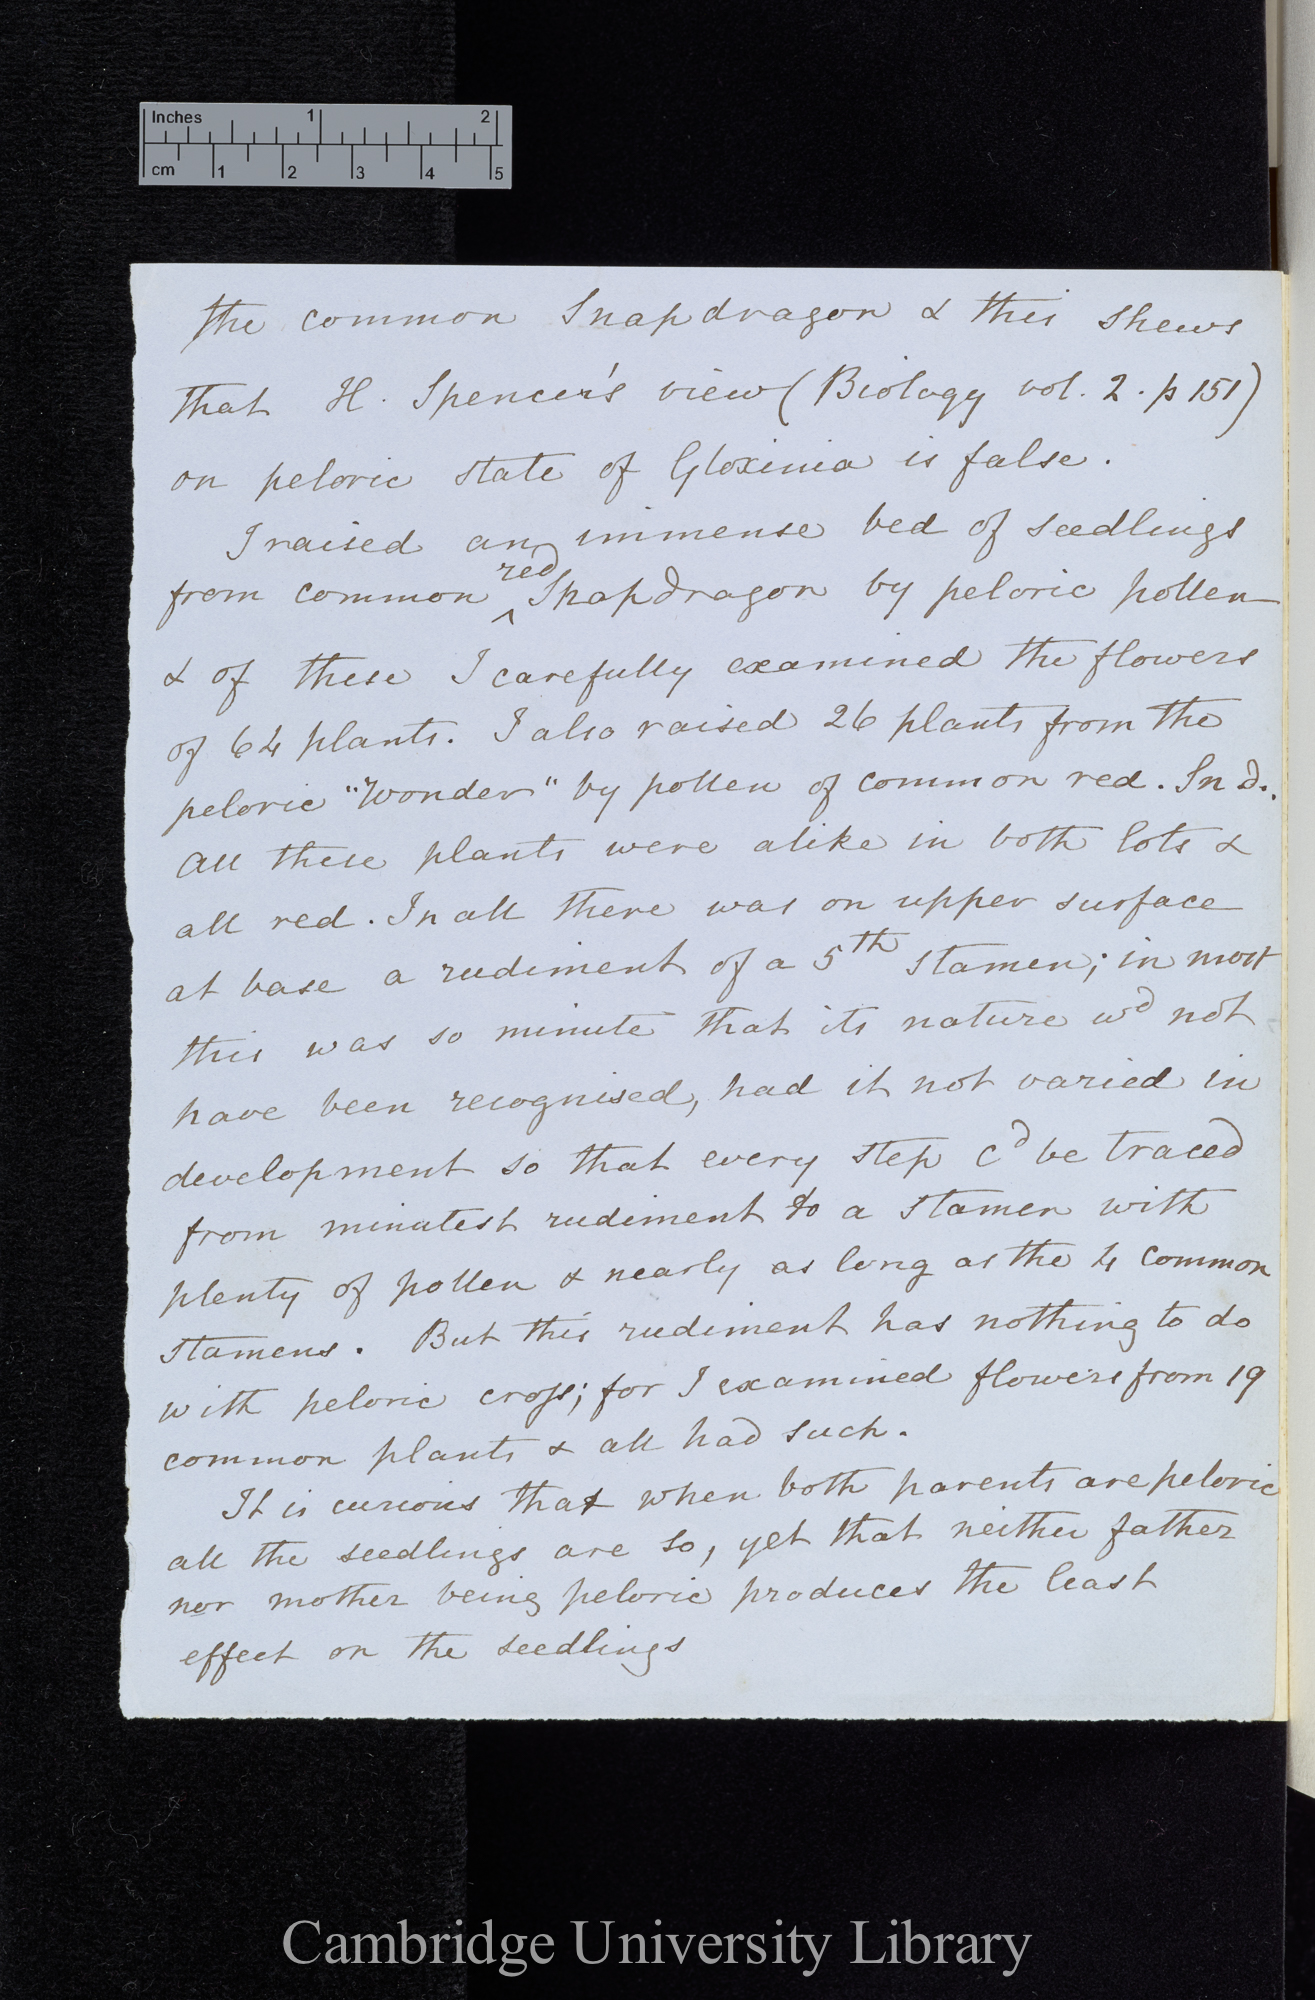 Inches 1 2
cm 1 2 3 4 5
the common Snapdragon & this shews
that H. Spencer's view (Biology vol. 2. p 151)
on peloric state of Gloxinia is false.
I raised an immense bed of seedlings
red
from common ^ Snapdragon by peloric pollen
& of these I carefully examined the flowers
of 64 plants. I also raised 26 plants from the
peloric "Wonder" by pollen of common red. Sn d..
All these plants were alike in both lots &
all red. In all there was on upper surface
at base a rudiment of a 5th stamen; in most
this was so minute that its nature wd not
have been recognised, had it not varied in
development so that every step cd be traced
from minutest rudiment to a stamen with
plenty of pollen & nearly as long as the 4 common
stamens. But this rudiment has nothing to do
with peloric cross; for I examined flowers from 19
common plants & all had such.
It is curious that when both parents are peloric
all the seedlings are so, yet that neither father
nor mother being peloric produces the least
effect on the seedlings
Cambridge University Library